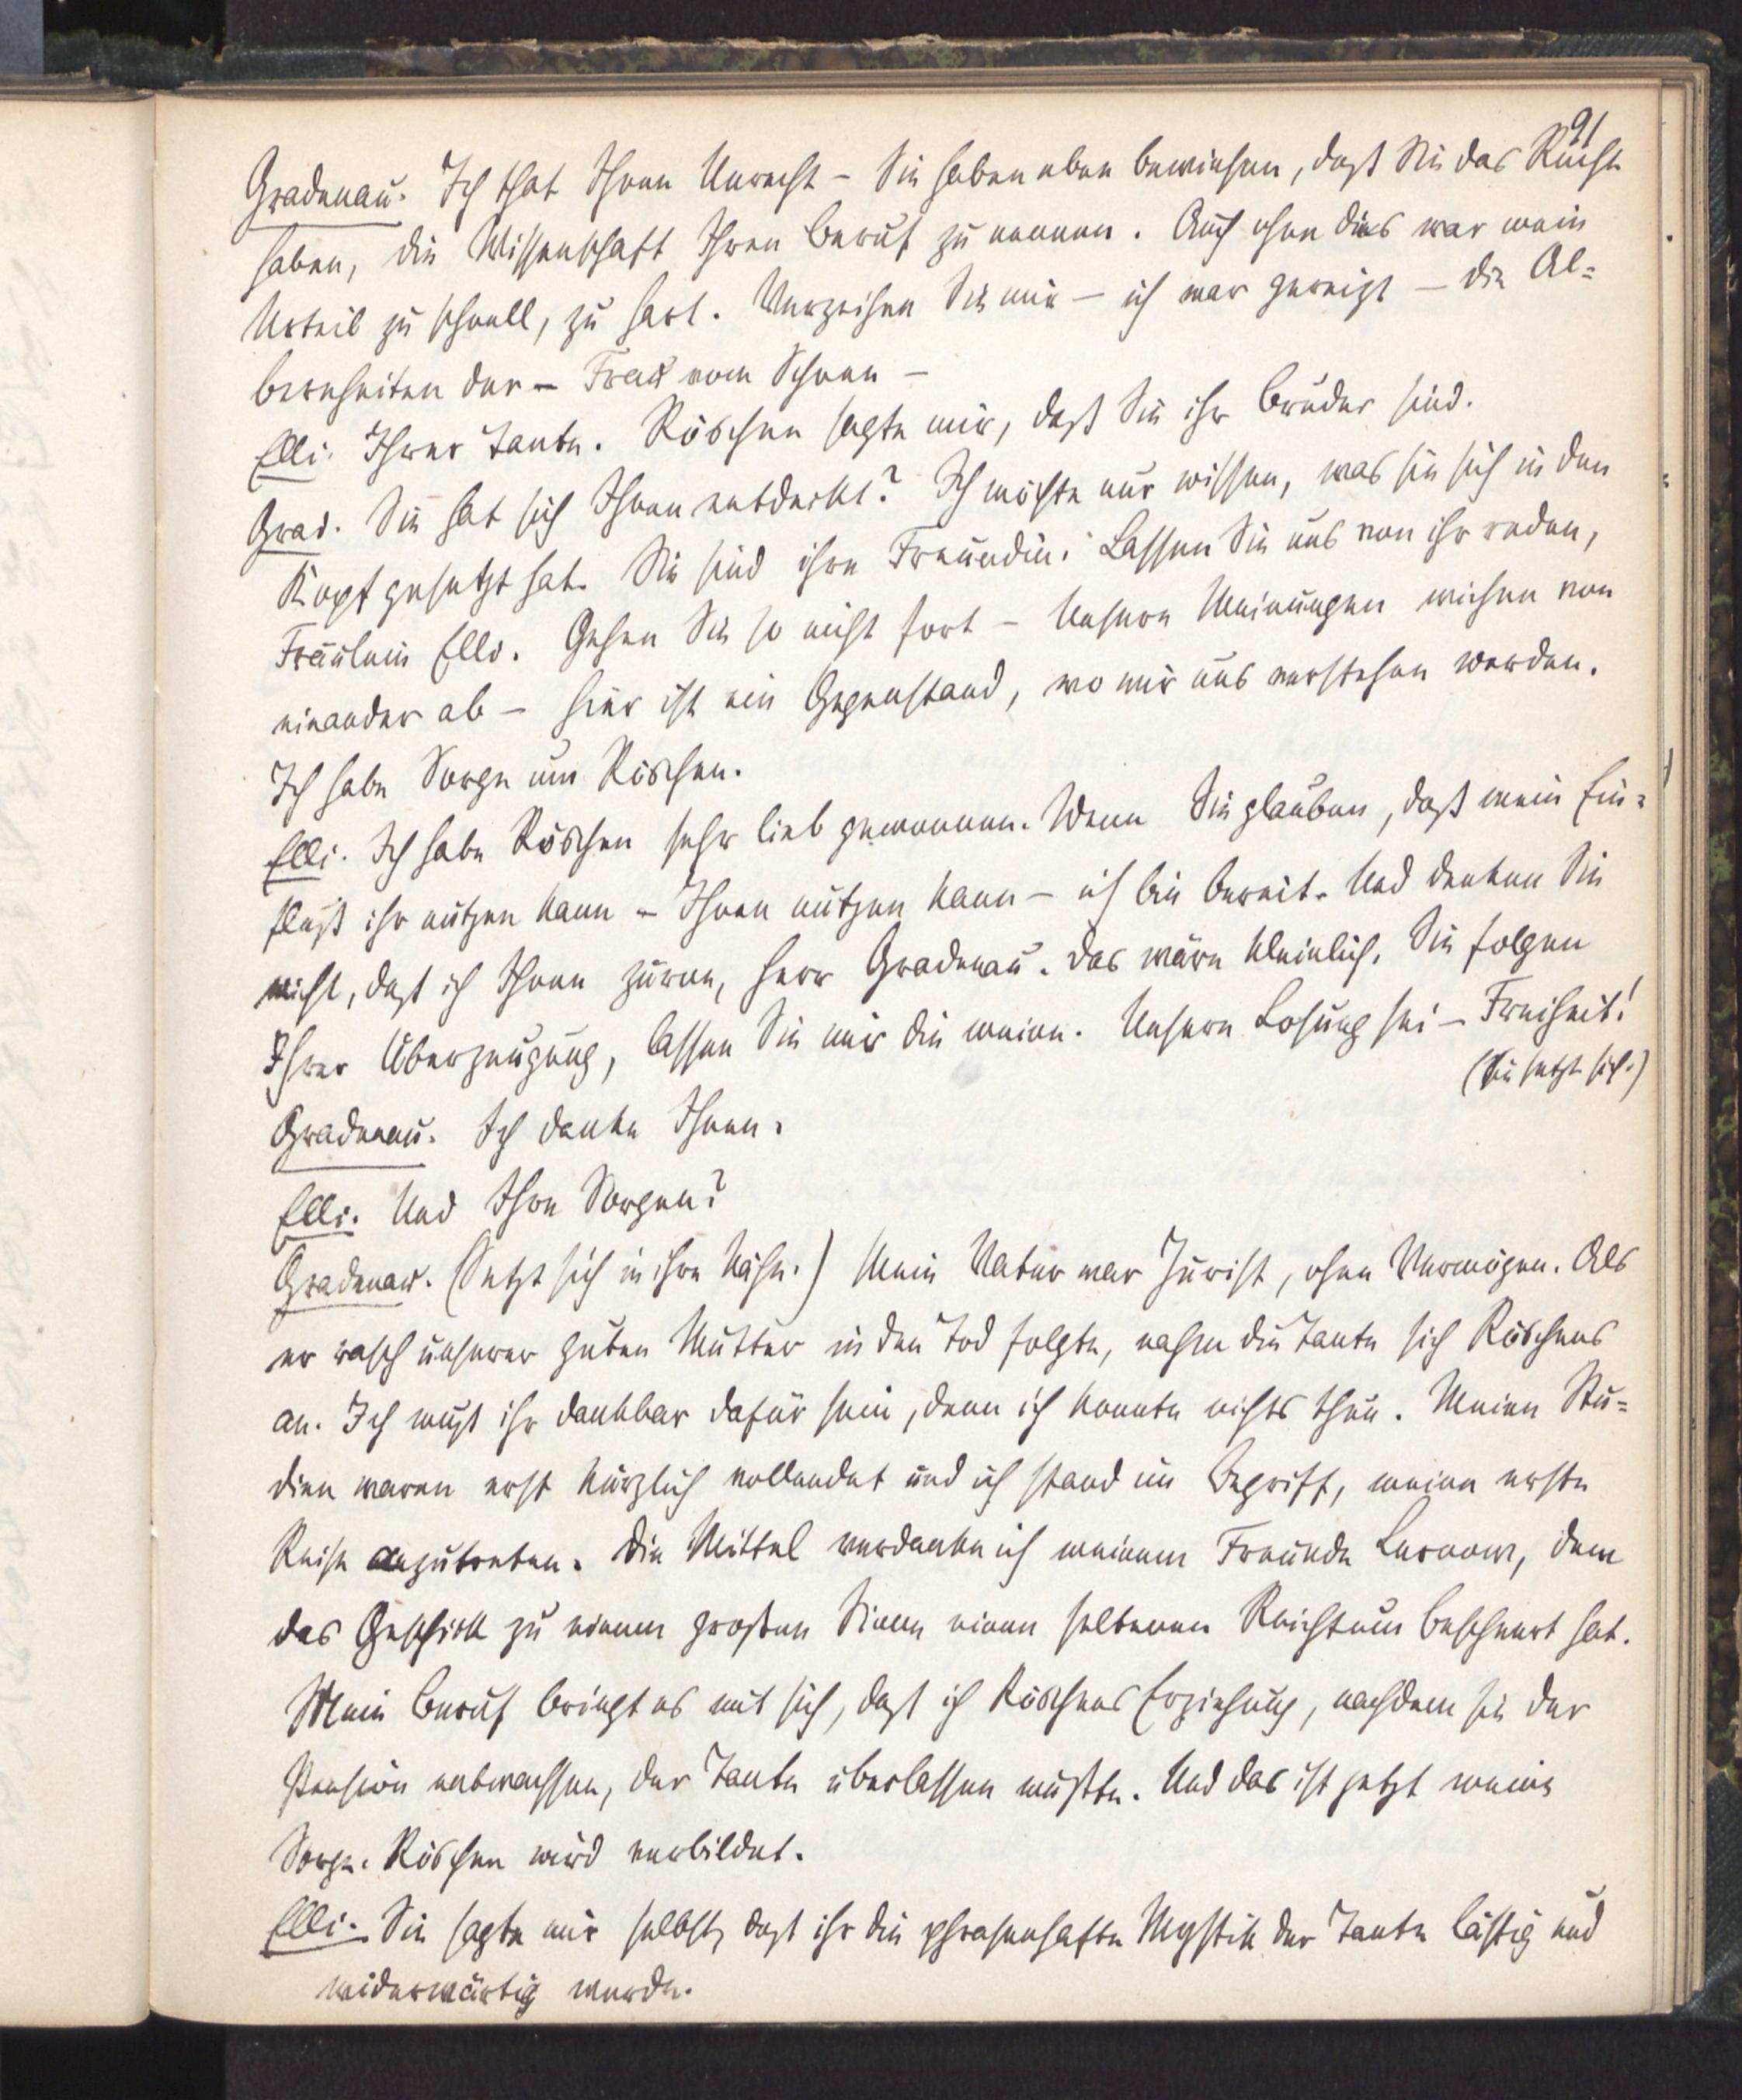 91
Gradenau. Ich that Ihnen Unrecht – Sie haben eben bewiesen, daß Sie das Recht
haben, die Wissenschaft Ihren Beruf zu nennen. Auch ohne dies war mein
Urteil zu schnell, zu hart. Verzeihen Sie mir – ich war gereizt – die Al=
bernheiten der – Frau vom Schnee –
Elli. Ihrer Tante. Röschen sagte mir, daß Sie ihr Bruder sind.
Grad. Sie hat sich Ihnen entdeckt? Ich möchte nur wissen, was sie sich in den
Kopf gesetzt hat. Sie sind ihre Freundin. Lassen Sie uns von ihr reden,
Fräulein Elli. Gehen Sie so nicht fort – Unsere Meinungen weichen von
einander ab – hier ist ein Gegenstand, wo wir uns verstehen werden.
Ich habe Sorge um Röschen.
Elli. Ich habe Röschen sehr lieb gewonnen. Wenn Sie glauben, daß mein Ein=
fluß ihr nützen kann – Ihnen nützen kann – ich bin bereit. Und denken Sie
nicht, daß ich Ihnen zürne, Herr Gradenau. Das wäre kleinlich. Sie folgen
Ihrer Überzeugung, lassen Sie mir die meine. Unsere Losung sei – Freiheit!
(Sie setzt sich.)
Gradenau. Ich danke Ihnen.
Elli. Und Ihre Sorgen?
Gradenau. (Setzt sich in ihre Nähe.) Mein Vater war Jurist, ohne Vermögen. Als
er rasch unserer guten Mutter in den Tod folgte, nahm die Tante sich Röschens
an. Ich muß ihr dankbar dafür sein, denn ich konnte nichts thun. Meine Stu=
dien waren erst kürzlich vollendet und ich stand im Begriff, meine erste
Reise anzutreten. Die Mittel verdanke ich meinem Freunde Lernow, dem
das Geschick zu einem großen Sinn einen seltenen Reichtum beschert hat.
Mein Beruf bringt es mit sich, daß ich Röschens Erziehung, nachdem sie der
Pension entwachsen, der Tante überlassen mußte. Und das ist jetzt meine
Sorge. Röschen wird verbildet.
Elli. Sie sagte mir selbst, daß ihr die phrasenhafte Mystik der Tante lästig und
widerwärtig werde.